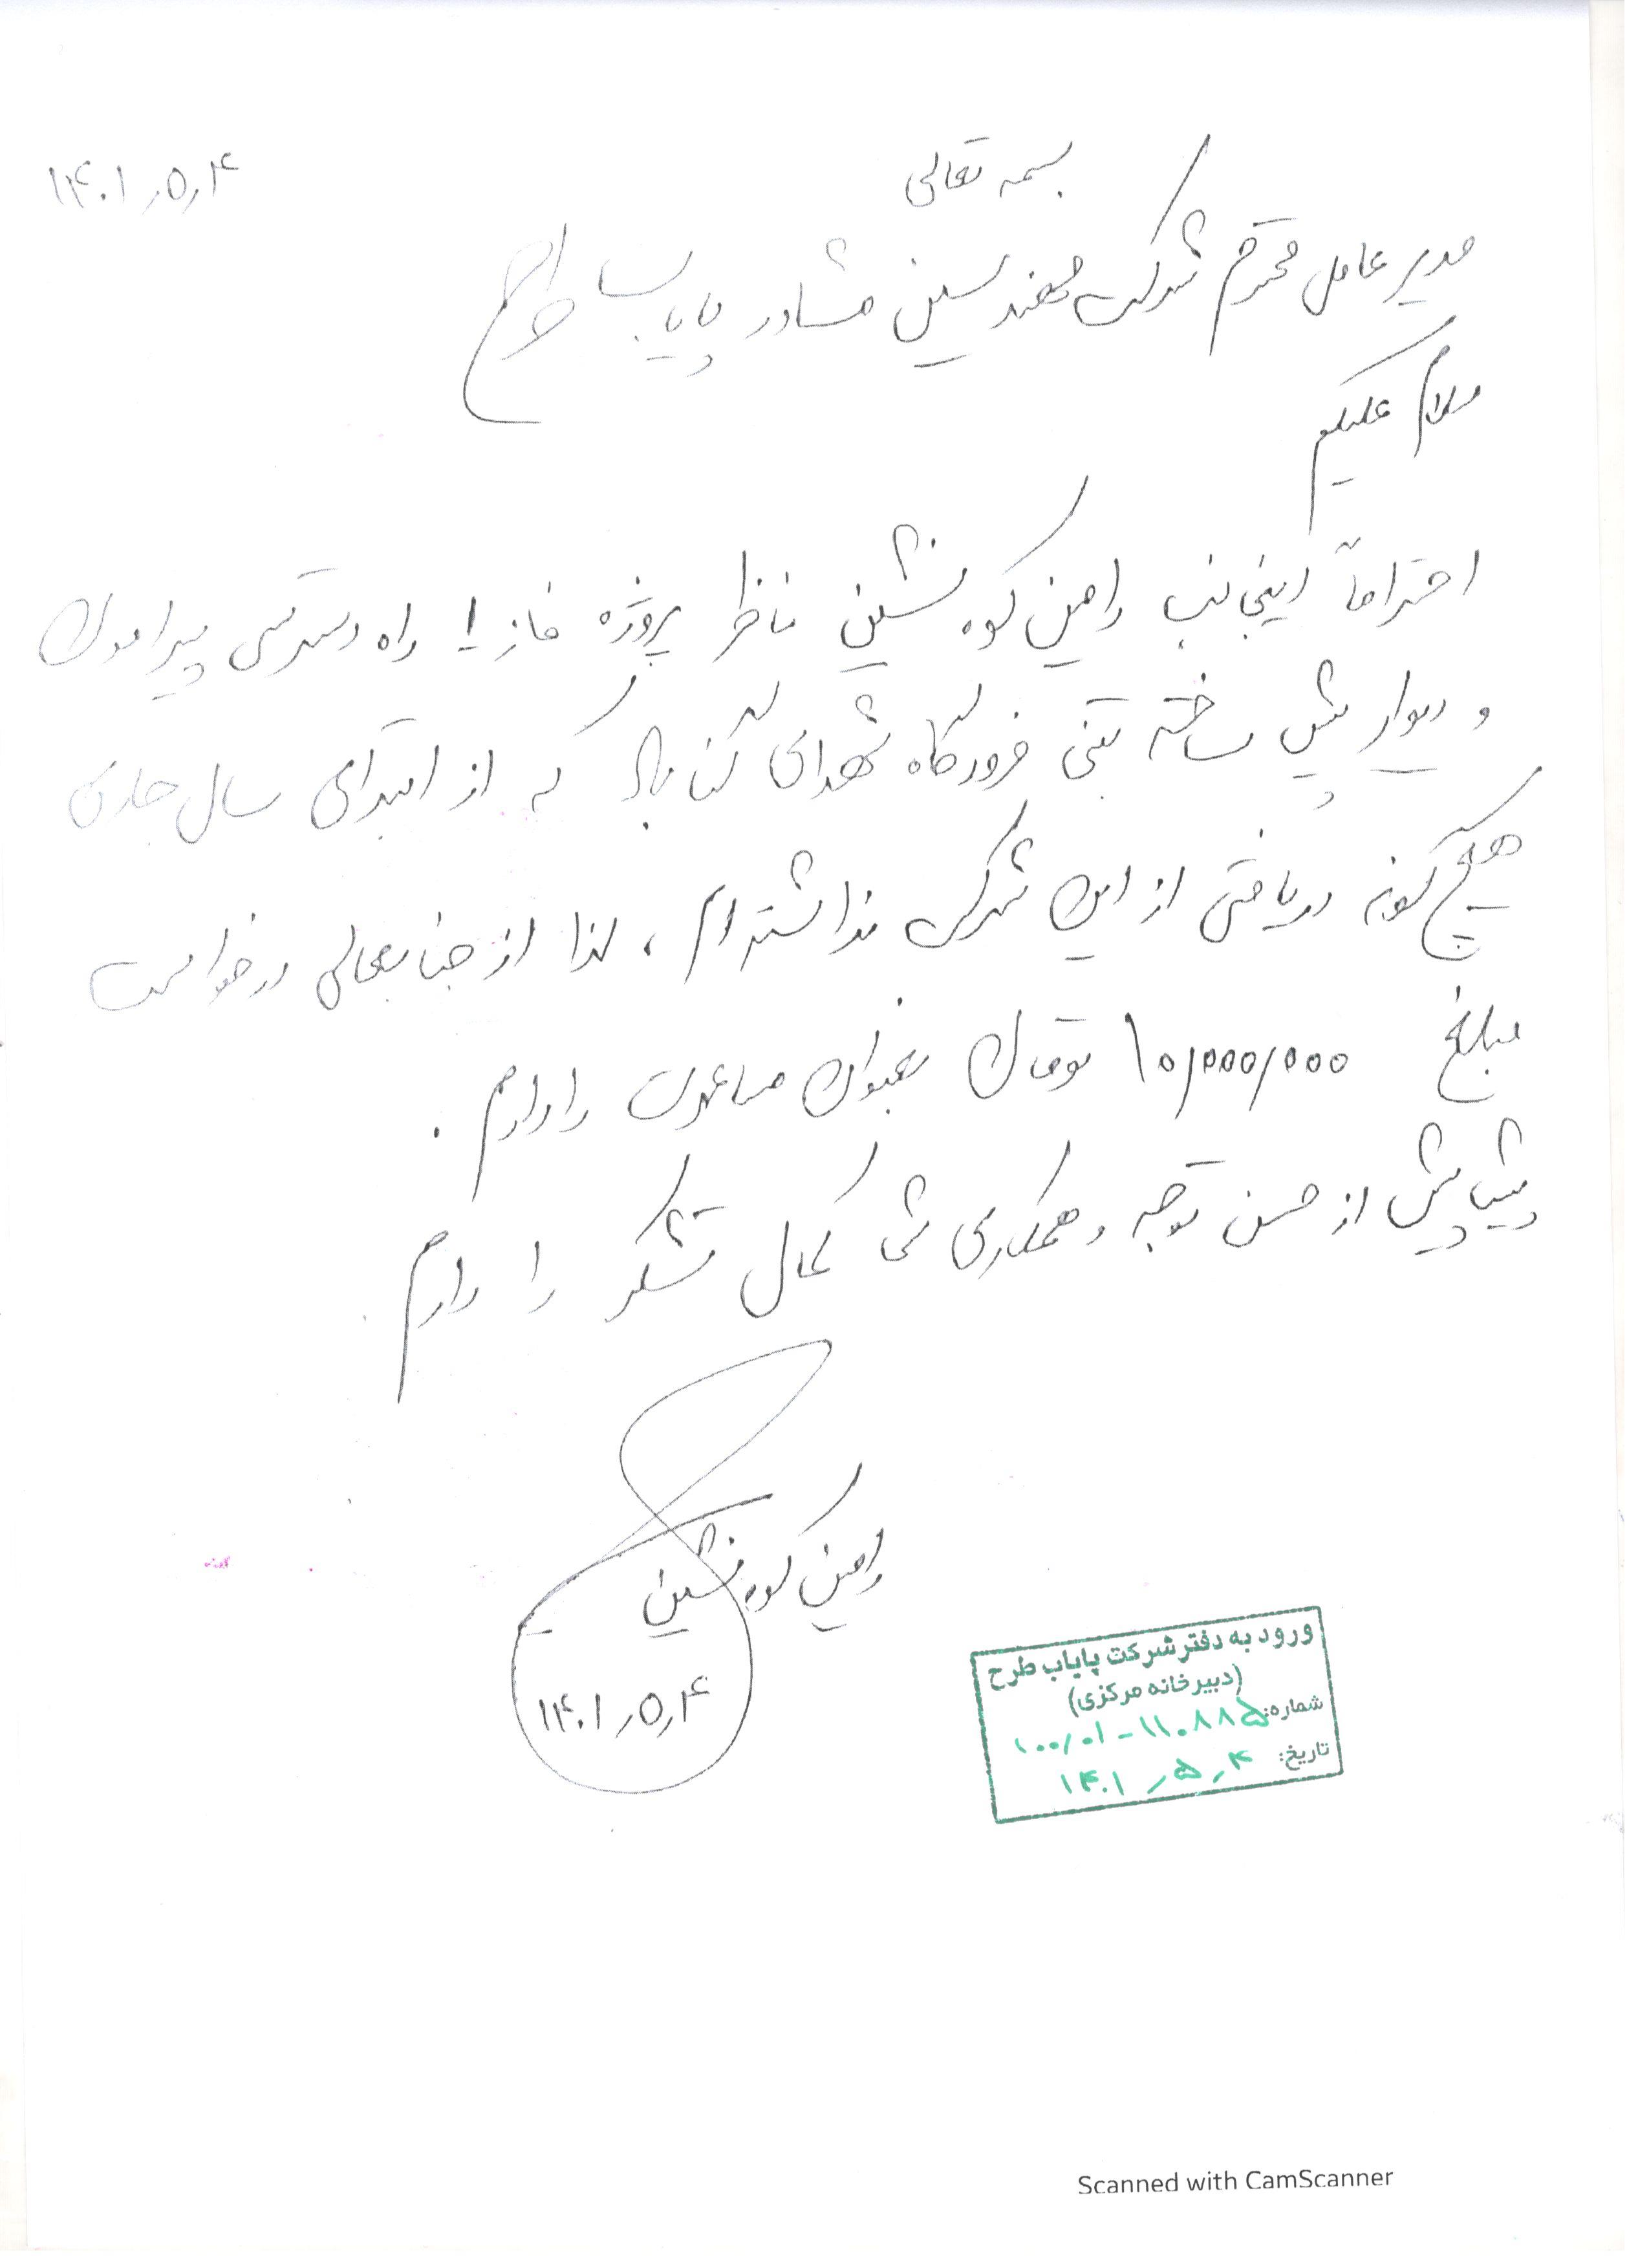 بسمه تعالی
۱۴۰۱,۵,۴
مدیر عامل محترم شرکت مهندسین مشاور پایاب طرح
سلام علیکم
احتراماً اینجانب رامین کوه نشین ناظر پروژه فاز ۱ راه دسترسی پیرامون
و دیوار پیش ساخته بتنی فرودگاه شهدای که از ابتدای سال جاری
هیچ گونه دریافتی از این شرکت نداشته ام، لذا از جنابعالی درخواست
مبلغ ۱۰,۰۰۰,۰۰۰ تومان بعنوان مساعدت را دارم .
پیشاپیش از حسن توجه و همکاری شما کمال تشکر را دارم .
رامین کوه نشین
۱۴۰۱,۵,۴
ورود به دفتر شرکت پایاب طرح
(دبیرخانه مرکزی)
شماره: ۱۰۰/۰۱-۱۱۰۸۸۵
تاریخ: ۱۴۰۱,۵,۴
Scanned with CamScanner